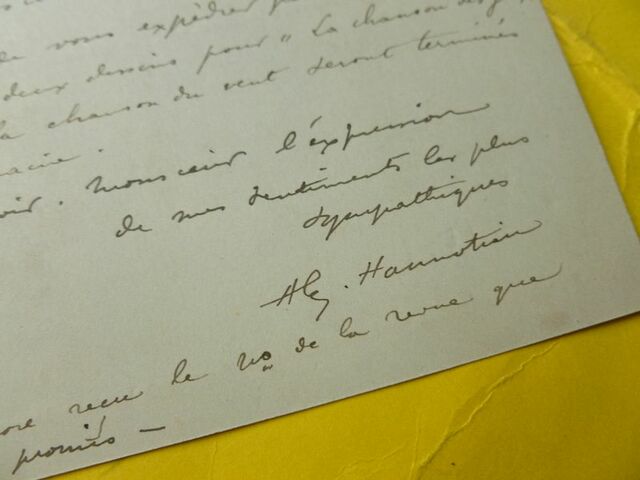 de vous expédier
deux dessins pour "La chanson des
la chanson du vent seront terminés
. Monsieur l'éxpression
de mes sentiments les plus
sympathiques
Alex. Hannotiau
recu le no de la revue que
promis —